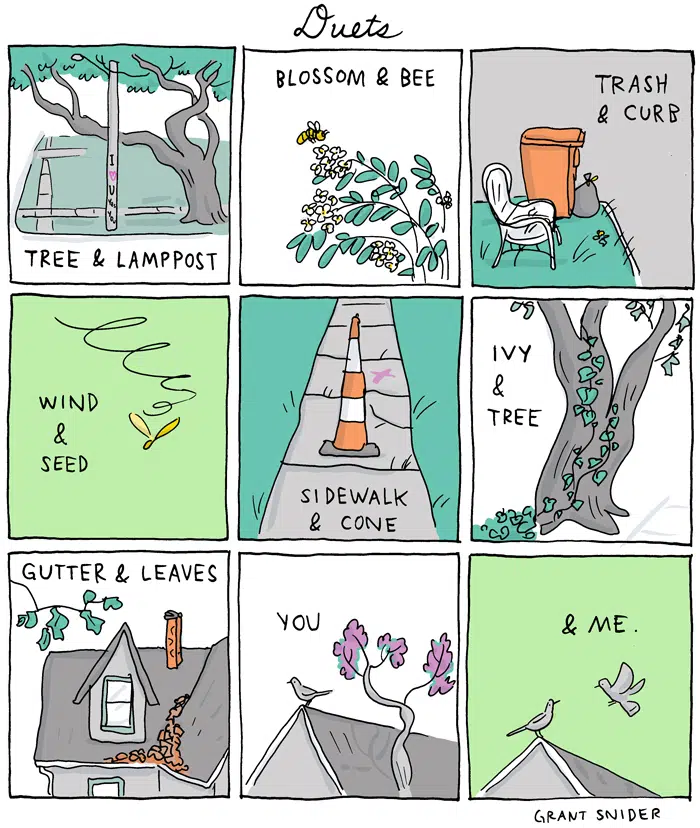 Duets
I
U
TREE & LAMPPOST
BLOSSOM & BEE
TRASH
& CURB
WIND
&
SEED
SIDEWALK
& CONE
IVY
&
TREE
GUTTER & LEAVES
YOU
& ME.
GRANT SNIDER